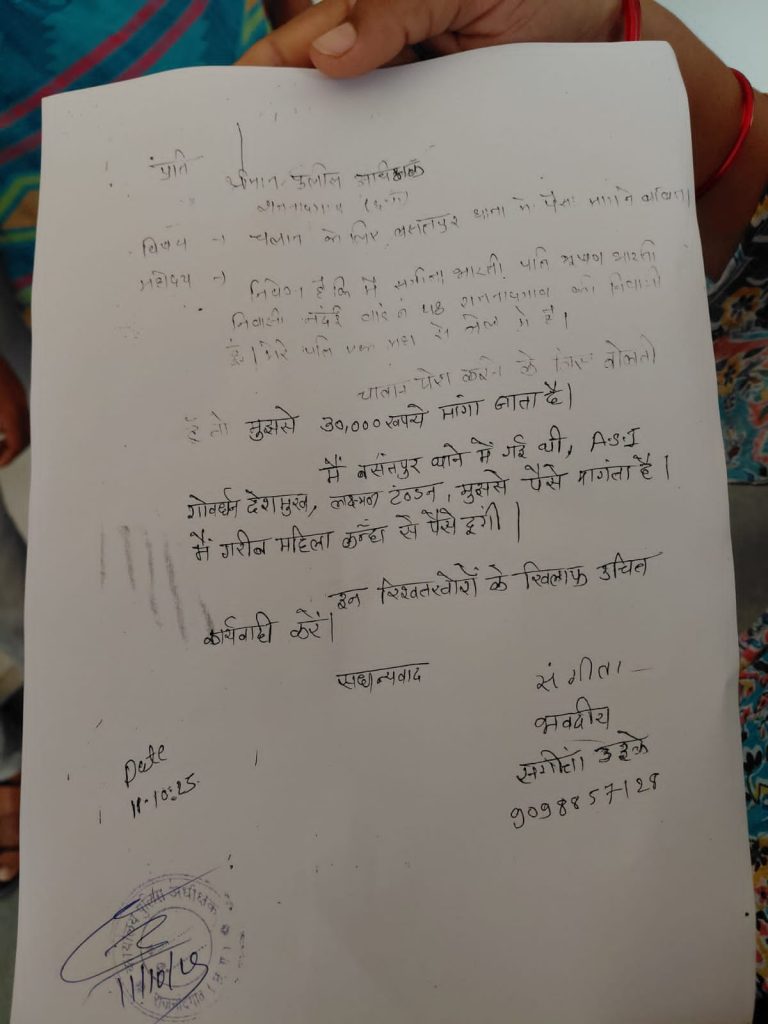 प्रति
श्रीमान पुलिस अधीक्षक
राजनांदगांव (छ.ग)
विषय → चलान के लिए बसंतपुर थाना में पैसा मांगने बाबत।
महोदय →
निवेदन है कि मै संगीता भारती पति भारती
निवासी वार्ड नं 48 राजनांदगांव की निवासी
हूँ। मेरे पति एक माह से जेल में है।
चालान पेश करने के लिए बोलती
हूँ तो मुझसे 30,000 रुपये मांगा जाता है।
मैं बसंतपुर थाने में गई थी, A.S.I
गोवर्धन देशमुख, लक्ष्मण टंण्डन, मुझसे पैसे मागंता है।
मैं गरीब महिला कहाँ से पैसे दूंगी।
इन रिश्वतखोरों के खिलाफ उचित
कार्यवाही करें।
सधन्यवाद
संगीता
भवदीय
संगीता उइके
9098857128
Date
11.10.25
कार्यालय पुलिस अधीक्षक
राजनांदगांव
11/10/25